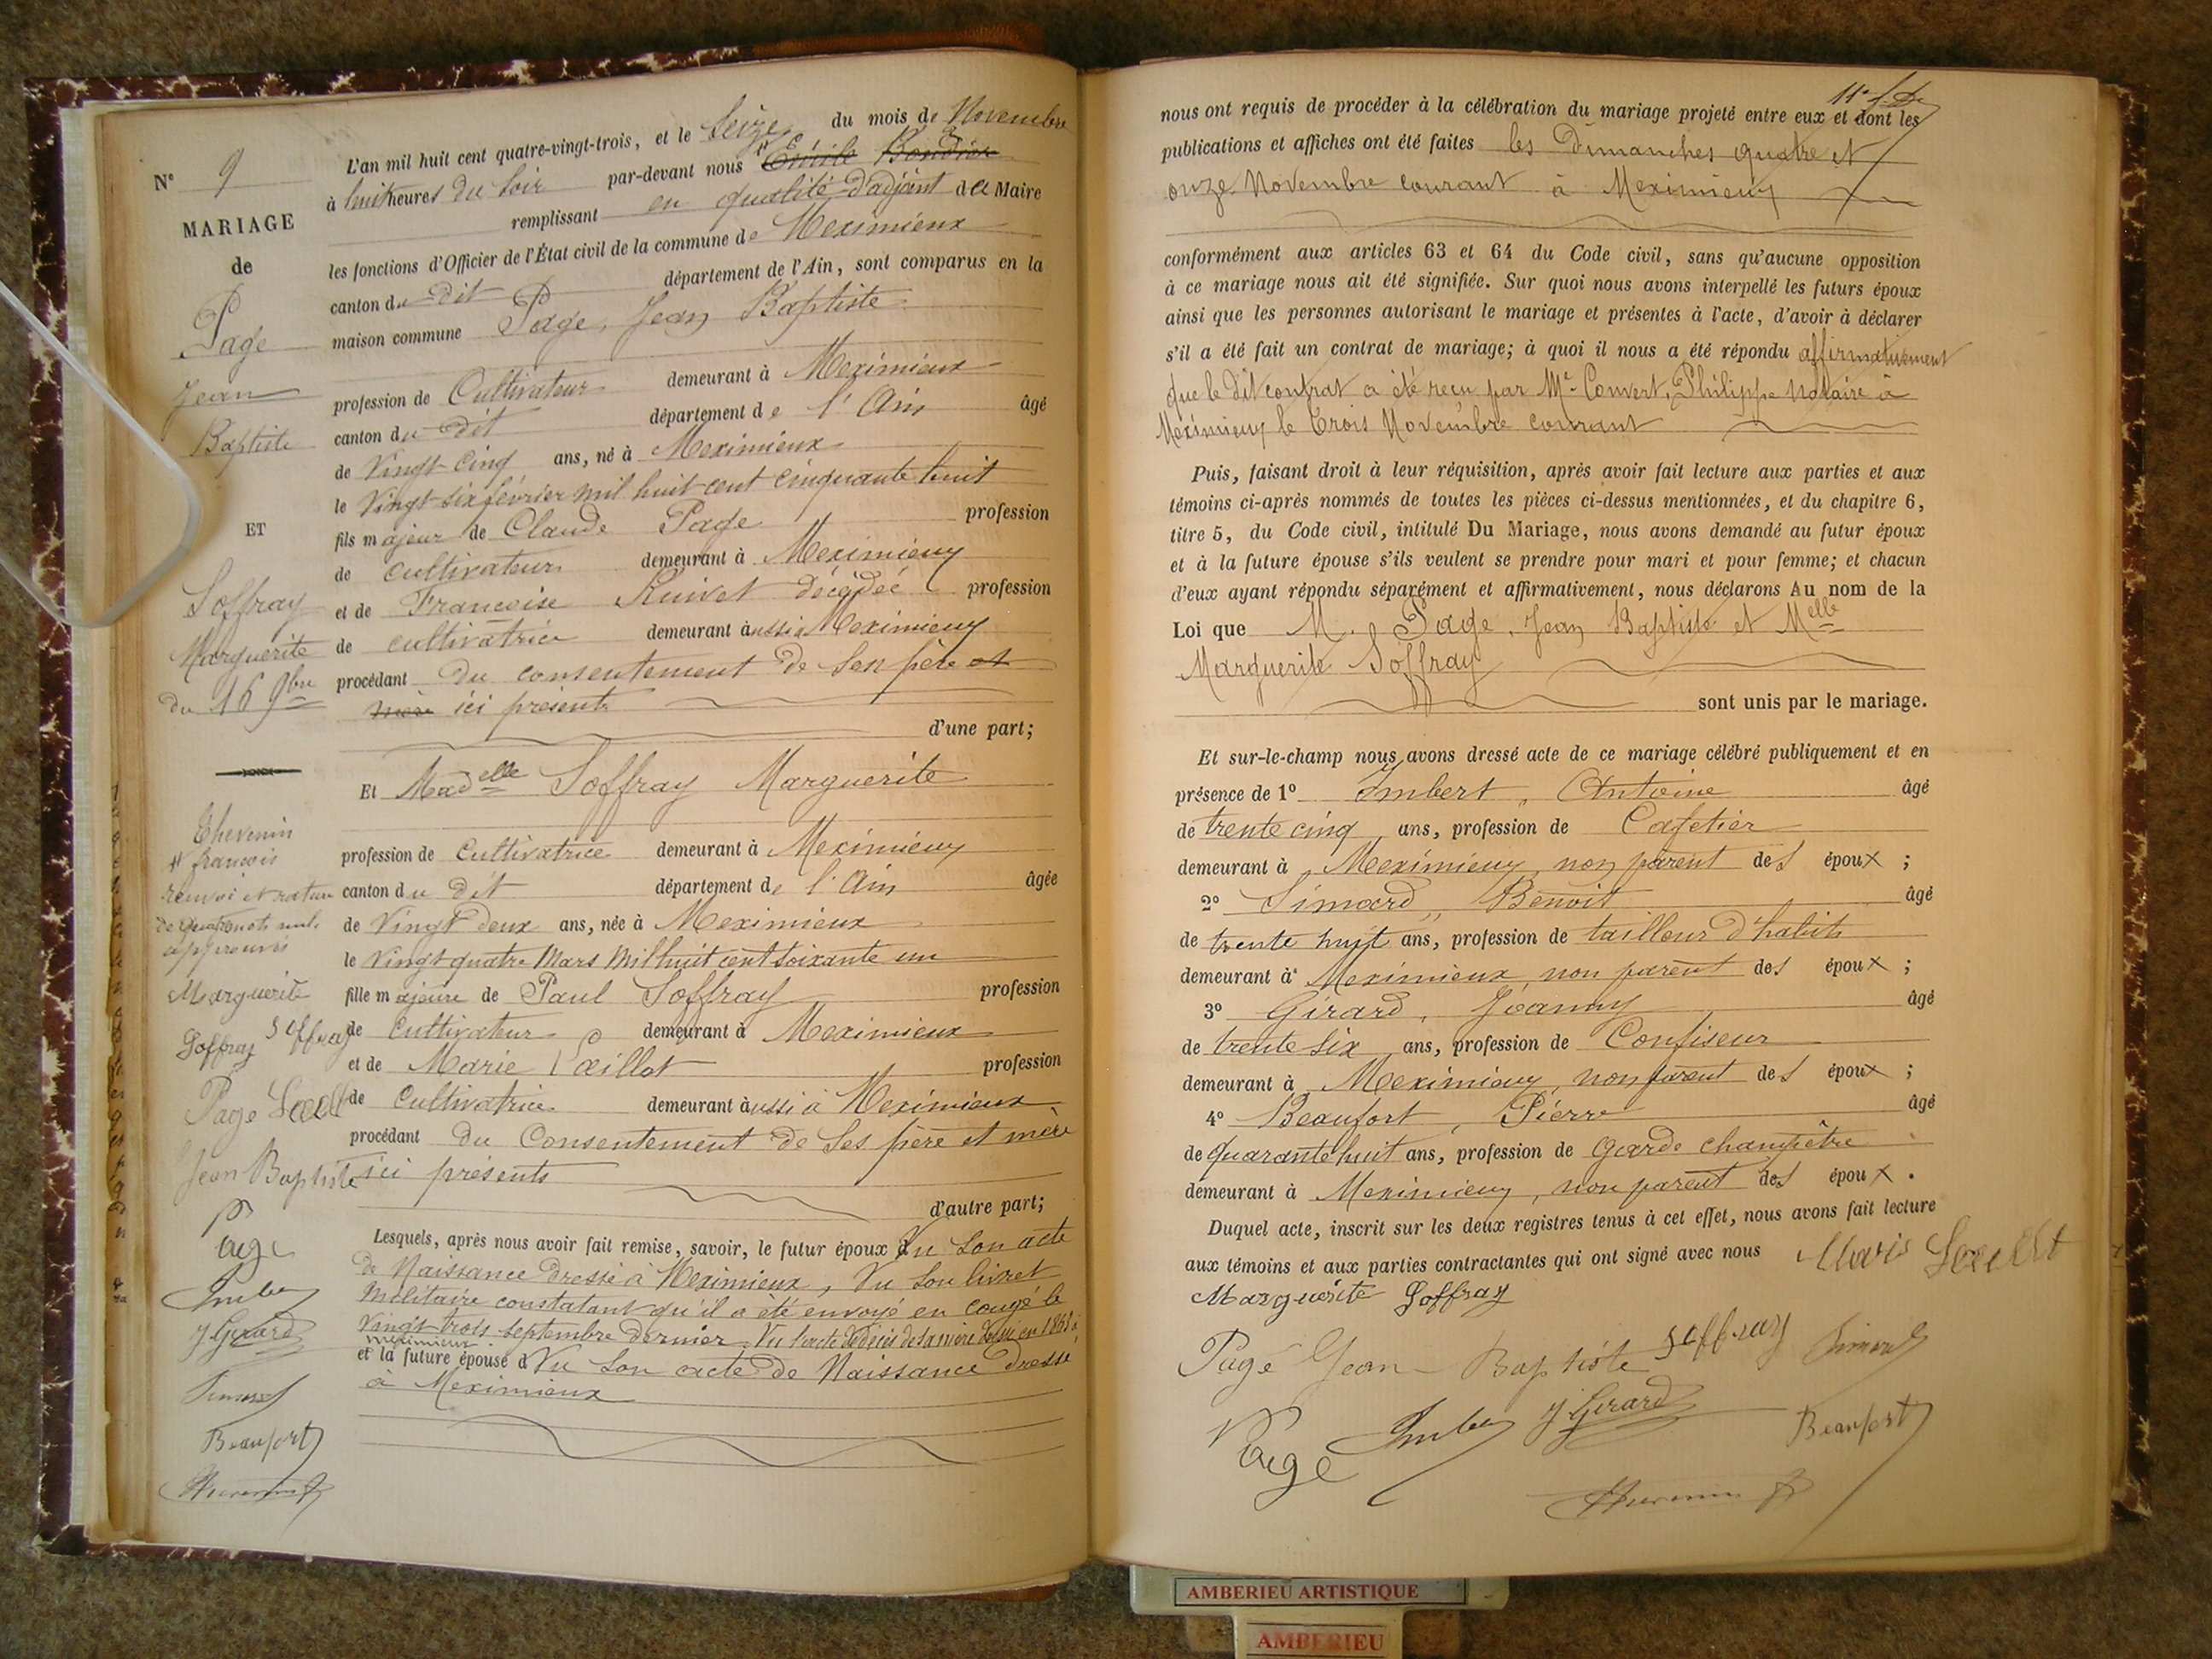 N° 9
MARIAGE
de
Page
Jean
Baptiste
ET
Soffray
Marguerite
du 16 9bre
Thevenin
françois
renvoi et rature
de quatre mots nuls
approuvés
Marguerite
Soffray Soffray
Page
Jean Baptiste
Page
Imber
J Girard
Simard
Beaufort
L'an mil huit cent quatre-vingt-trois, et le Seize du mois de Novembre
à huit heures du Soir par-devant nous Emile
remplissant en qualité d'adjoint de Maire
les fonctions d'Officier de l'État civil de la commune de Meximieux
canton du dit département de l'Ain, sont comparus en la
maison commune Page, Jean Baptiste
profession de Cultivateur demeurant à Meximieux
canton du dit département de l'Ain âgé
de Vingt-cinq ans, né à Meximieux
le Vingt six février mil huit cent cinquante huit
fils majeur de Claude Page profession
de cultivateur demeurant à Meximieux
et de Francoise Ruivet décédée profession
de cultivatrice demeurant aussi à Meximieux
procédant du consentement de Son père et
mère ici présents
d'une part;
Et Madelle Soffray Marguerite
profession de Cultivatrice demeurant à Meximieux
canton du dit département de l'Ain âgée
de Vingt deux ans, née à Meximieux
le Vingt quatre Mars Mil huit cent soixante un
fille majeure de Paul Soffray profession
de Cultivateur demeurant à Meximieux
et de Marie profession
de Cultivatrice demeurant aussi à Meximieux
procédant du Consentement de Ses père et mère
ici présents
d'autre part;
Lesquels, après nous avoir fait remise, savoir, le futur époux Vu Son acte
de Naissance dressé à Meximieux, Vu Son livret
Militaire constatant qu'il a été envoyé en congé le
Vingt trois septembre dernier. Vu l'acte de décès de sa mère
Meximieux
et la future épouse d Vu Son acte de Naissance dressé
à Meximieux
nous ont requis de procéder à la célébration du mariage projeté entre eux et dont les
publications et affiches ont été faites les Dimanches quatre et
onze Novembre courant à Meximieux
conformément aux articles 63 et 64 du Code civil, sans qu'aucune opposition
à ce mariage nous ait été signifiée. Sur quoi nous avons interpellé les futurs époux
ainsi que les personnes autorisant le mariage et présentes à l'acte, d'avoir à déclarer
s'il a été fait un contrat de mariage; à quoi il nous a été répondu affirmativement
que le dit contrat a été reçu par Me Convert, Philippe Notaire à
Meximieux le Trois Novembre courant
Puis, faisant droit à leur réquisition, après avoir fait lecture aux parties et aux
témoins ci-après nommés de toutes les pièces ci-dessus mentionnées, et du chapitre 6,
titre 5, du Code civil, intitulé Du Mariage, nous avons demandé au futur époux
et à la future épouse s'ils veulent se prendre pour mari et pour femme; et chacun
d'eux ayant répondu séparément et affirmativement, nous déclarons Au nom de la
Loi que M. Page, Jean Baptiste et Melle
Marguerite Soffray
sont unis par le mariage.
Et sur-le-champ nous avons dressé acte de ce mariage célébré publiquement et en
présence de 1° Imbert, Antoine âgé
de trente cinq ans, profession de Cafetier
demeurant à Meximieux, non parent des époux ;
2° Simard, Benoit âgé
de trente huit ans, profession de tailleur d'habits
demeurant à Meximieux, non parent des époux ;
3° Girard, Jeanny âgé
de trente six ans, profession de Confiseur
demeurant à Meximieux, non parent des époux ;
4° Beaufort, Pierre âgé
de quarante huit ans, profession de garde champêtre
demeurant à Meximieux, non parent des époux .
Duquel acte, inscrit sur les deux registres tenus à cet effet, nous avons fait lecture
aux témoins et aux parties contractantes qui ont signé avec nous Marie
Marguerite Soffray
Page Jean-Baptiste Soffray Simard
Page Imber J Girard Beaufort
AMBERIEU ARTISTIQUE
AMBERIEU